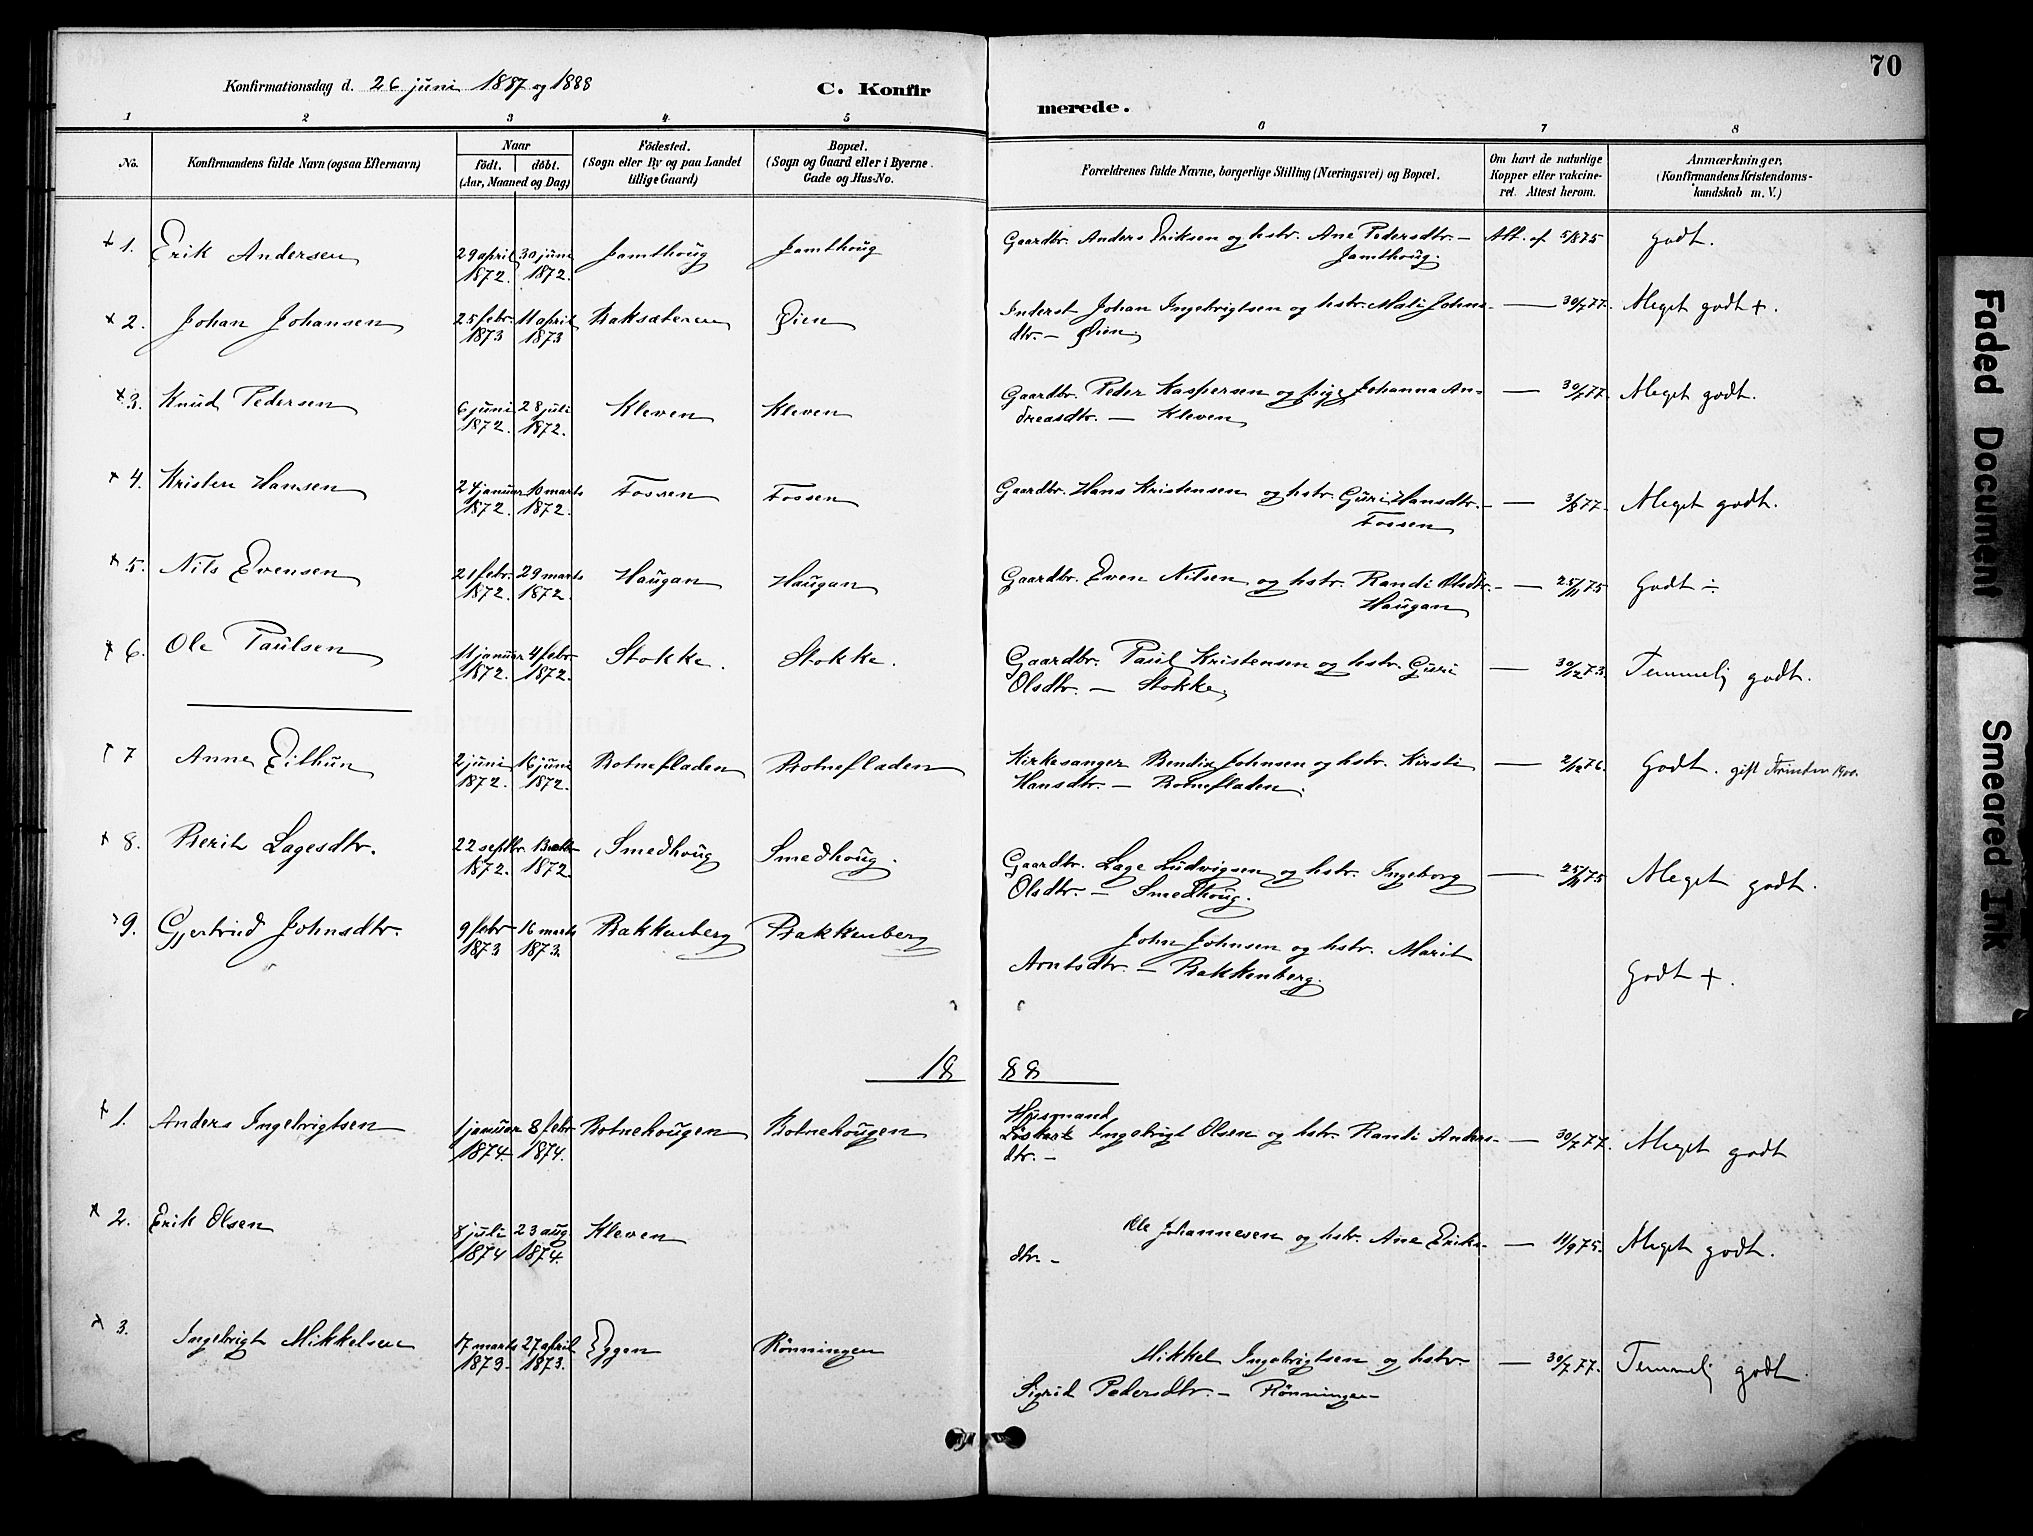 70
Konfirmationsdag d. 26 juni 1887 og 1888
C. Konfirmerede.
1 2 3 4 5 6 7 8
No. Konfirmandens fulde Navn (ogsaa Efternavn) Naar født. døbt. (Aar, Maaned og Dag) Fødested. (Sogn eller By og paa Landet tillige Gaard) Bopæl. (Sogn og Gaard eller i Byerne Gade og Hus-No. Forældrenes fulde Navne, borgerlige Stilling (Næringsvei) og Bopæl. Om havt de naturlige Kopper eller vakcineret. Attest herom. Anmærkninger, (Konfirmandens Kristendomskundskab m. V.)
+ 1. Erik Andersen 29 april 1872. 30 juni 1872. Jamthoug Jamthoug Gaardbr. Anders Eriksen og hstr. Ane Pedersdtr. – Jamthoug. Att. af 5/8 75 Godt.
+ 2. Johan Johansen 25 febr. 1873 11 april 1873 Baksæteren Øien Inderst Johan Ingebrigtsen og hstr. Mali Johnsdtr. – Øien. — 30/7 77. Meget godt +.
+ 3. Knud Pedersen 6 juni 1872. 28 juli 1872. Kleven Kleven Gaardbr. Peder Kaspersen og pige Johanna Andreasdtr. – Kleven — 30/7 77. Meget godt.
+ 4. Kristen Hansen 24 januar 1872. 10 marts 1872. Fossen Fossen Gaardbr. Hans Kristensen og hstr. Guri Hansdtr. – Fossen — 3/8 77. Meget godt.
+ 5. Nils Evensen 21 febr. 1872. 29 marts 1872. Haugan Haugan Gaardbr. Even Nilsen og hstr. Randi Olsdtr. – Haugan — 25/11 75 Godt ÷
+ 6. Ole Paulsen 11 januar 1872. 4 febr 1872. Stokke. Stokke. Gaardbr. Paul Kristensen og hstr. Guri Olsdtr. – Stokke — 30/12 73. Temmelig godt.
+ 7 Anne Eithun 2 juni 1872. 16 juni 1872. Botnefladen Botnefladen Kirkesanger Bendix Johnsen og hstr. Kirsti Hansdtr. – Botnefladen. — 2/12 76. Godt. gift
+ 8. Berit Lagesdtr. 22 septbr. 1872. 1872. Smedhoug Smedhoug. Gaardbr. Lage Ludvigsen og hstr. Ingeborg Olsdtr. – Smedhoug. — 25/11 75 Meget godt.
9. Gjertrud Johnsdtr. 9 febr 1873 16 marts 1873. Bakkenberg Bakkenberg John Johnsen og hstr. Marit Arntsdtr. – Bakkenberg. Godt +.
1888
+ 1. Anders Ingebrigtsen 1 januar 1874. 8 febr 1874. Botnehougen Botnehougen Husmand Ingebrigt Olsen og hstr. Randi Andersdtr. – — 30/7 77. Meget godt
+ 2. Erik Olsen 8 juli 1874 23 aug 1874. Kleven Ole Johannesen og hstr. Ane Eriksdtr. – — 11/9 75. Meget godt.
+ 3. Ingebrigt Mikkelsen 17 marts 1873. 27 april 1873. Eggen Rönningen Mikkel Ingebrigtsen og hstr. Sigrid Pedersdtr. – Rönningen — 30/7 77. Temmelig godt.
Faded Document
Smeared Ink